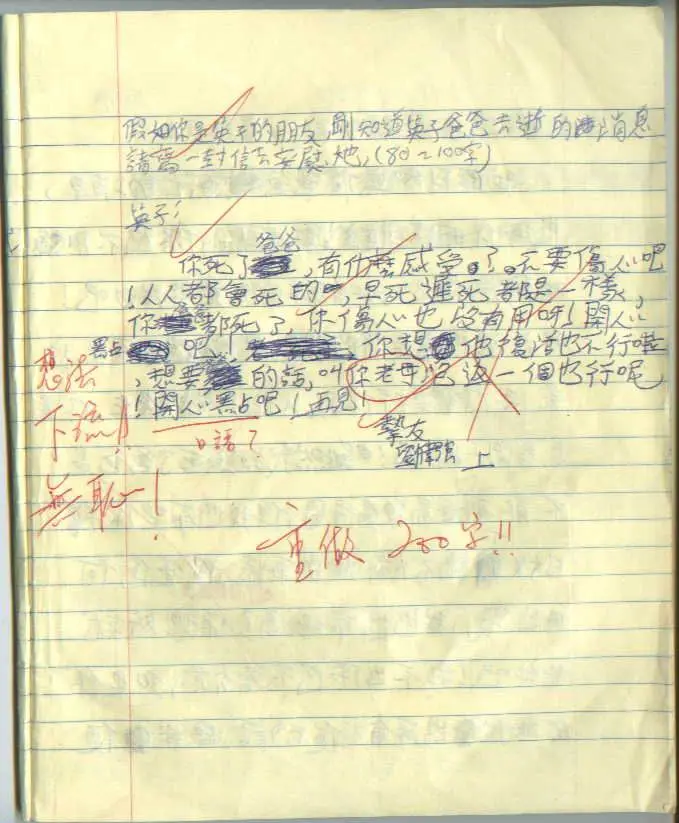 假如你是英子的朋友,剛知道英子爸爸去逝的消息
請寫一封信去安慰她,(80~100字)
英子:
你死了爸爸,有什麼感受。了。不要傷心吧
!人人都會死的,早死遲死都是一樣,
你都死了,你傷心也沒有用呀!開心
點吧,你想他復活也不行啦
,想要的話,叫你老母返一個也行呢
!開心點吧!再見!
口語?
摯友
上
想法
下流!!
無恥!
重做 200字!!